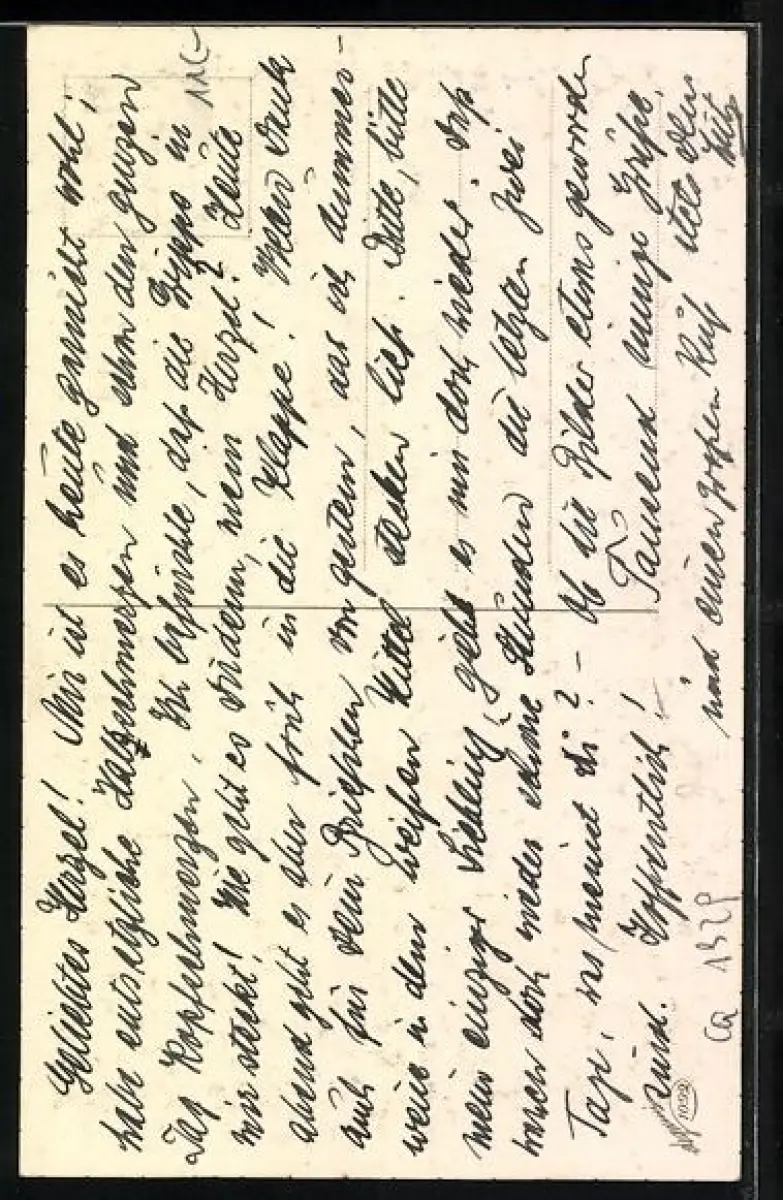 Geliebtes Herzel! Mir ist es heute garnicht wohl,
habe entsetzliche Halsschmerzen und schon den ganzen
Tag Kopfschmerzen. Ich befürchte, daß die Grippe in
mir steckt! Wie geht es Dir denn, mein Herzel? Heute
abend geht es aber früh in die Klappe! Vielen Dank
auch für Dein Briefchen von gestern, das ich dummer-
weise in dem weißen Kittel stecken ließ. Bitte, bitte
mein einziger Liebling, geht es mir doch wieder. Daß
waren doch wieder schöne Stunden die letzten zwei
Tage, was meinst Du? – Ob die Bilder etwas geworden
sind. Hoffentlich! Tausend innige Grüße.
und einen großen Kuß stets Dein
ca 1929